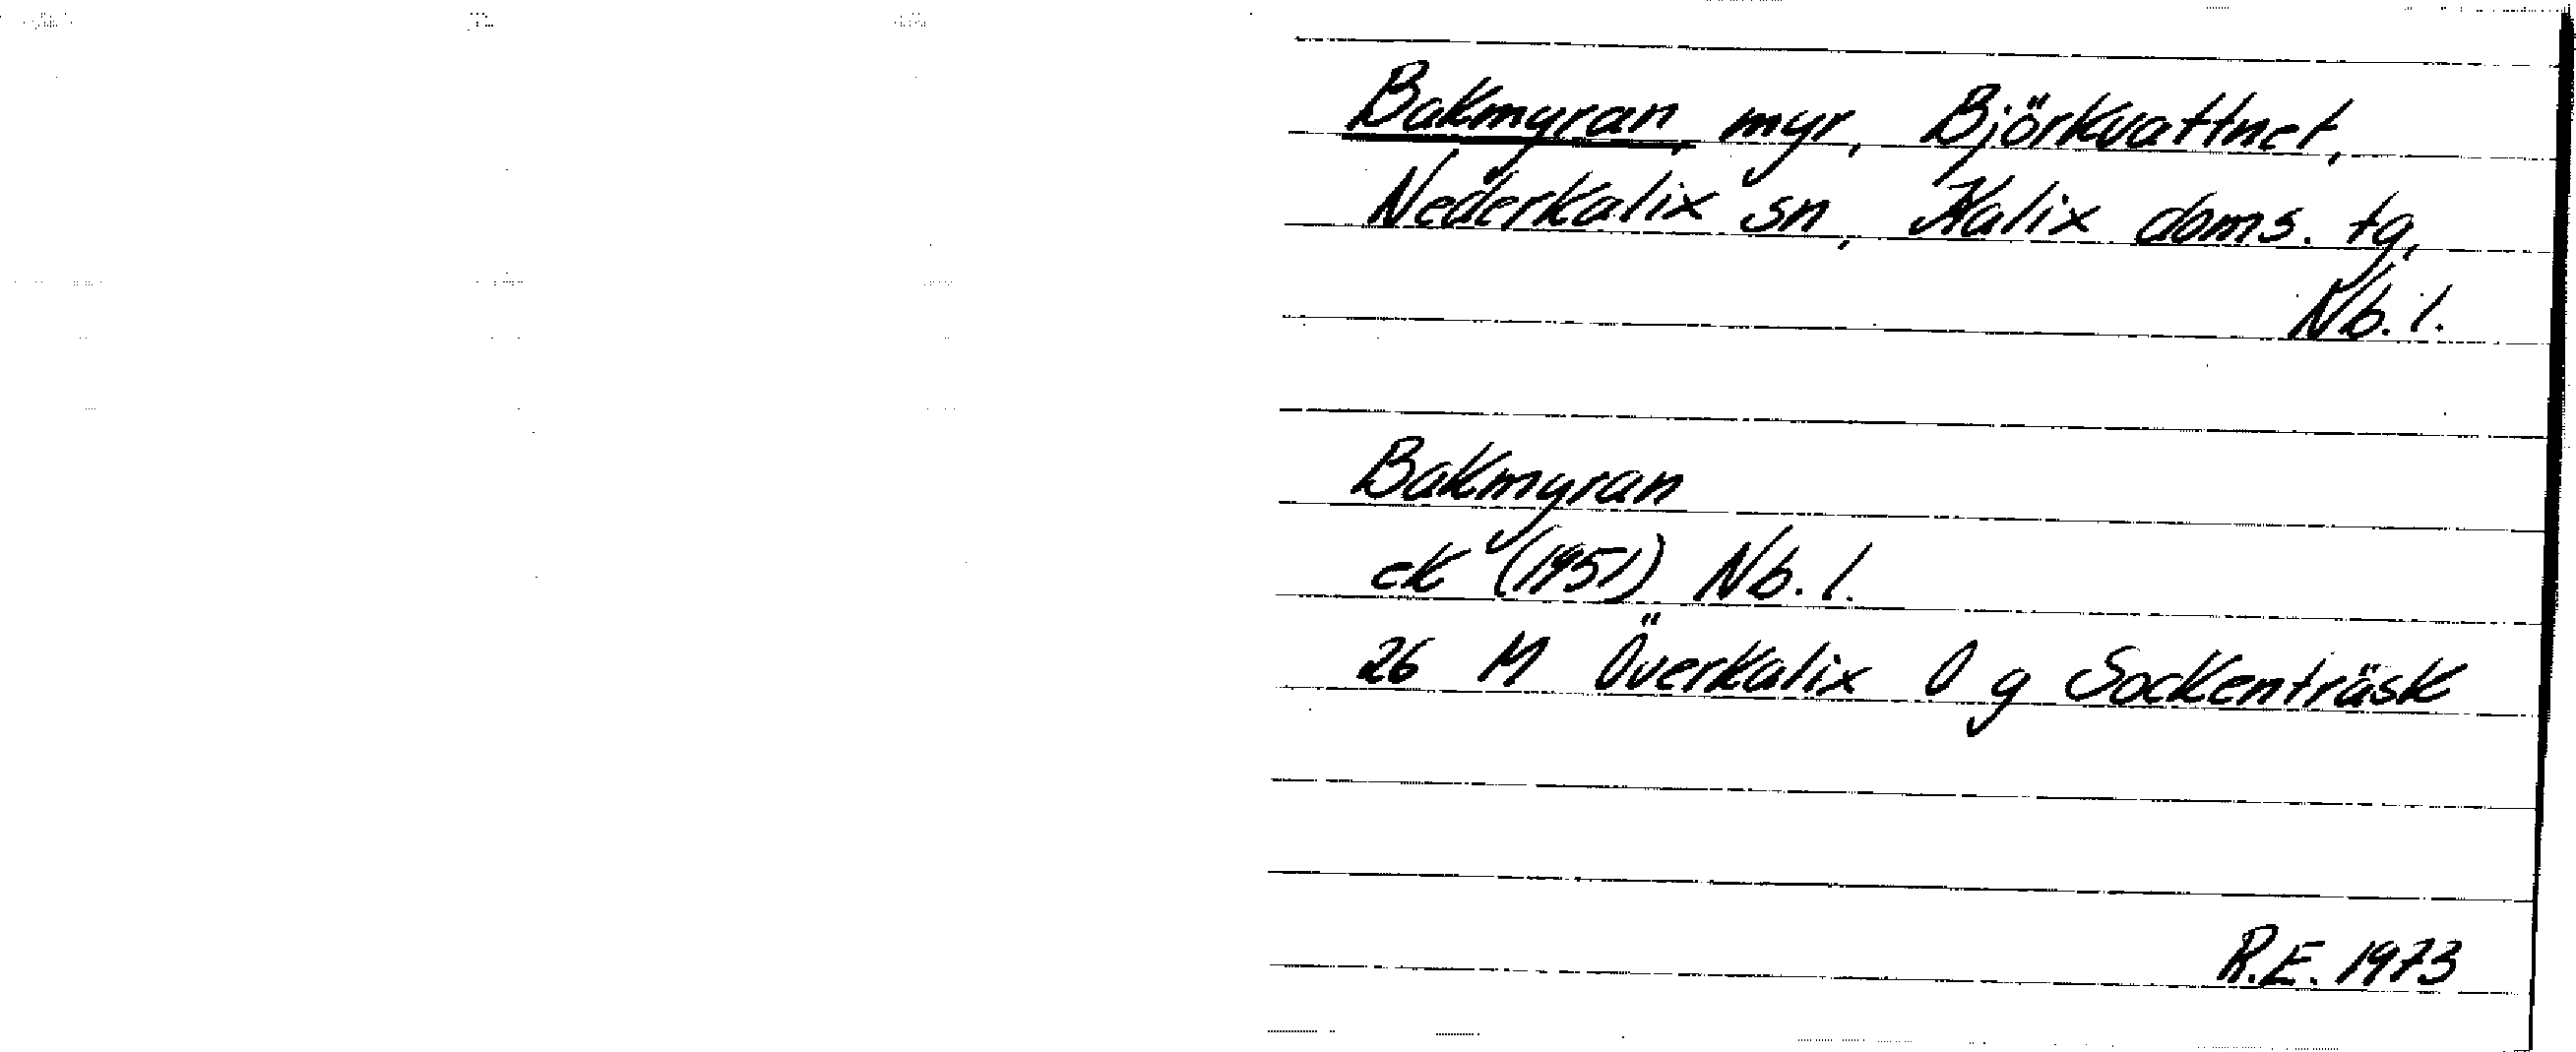 Bakmyran, myr, Björkvattnet,
Nederkalix sn, Kalix doms. tg,
Nb. l.
Bakmyran
ek (1951) Nb. l.
26 M Överkalix O g Sockenträsk
R.E. 1973